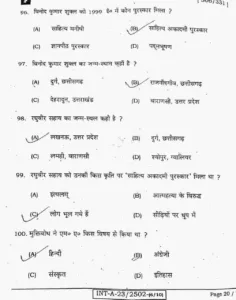 96. विनोद कुमार शुक्ल को 1999 ई० में कौन पुरस्कार मिला ?
(A) साहित्य
(B) साहित्य अकादमी पुरस्कार
(C) ज्ञानपीठ पुरस्कार
(D) पद्मभूषण
97. विनोद कुमार शुक्ल का जन्म-स्थान कहाँ है ?
(A) दुर्ग, छत्तीसगढ़
(B) राजनाँदगाँव, छत्तीसगढ़
(C) देहरादून, उत्तराखंड
(D) वाराणसी, उत्तर प्रदेश
98. रघुवीर सहाय का जन्म-स्थान कहाँ है ?
(A) लखनऊ, उत्तर प्रदेश
(B) दुर्ग, छत्तीसगढ़
(C) लमही, वाराणसी
(D) श्योपुर, ग्वालियर
99. रघुवीर सहाय को उनकी किस कृति पर "साहित्य अकादमी पुरस्कार" मिला था ?
(A)
(B) आत्महत्या के विरुद्ध
(C) लोग भूल गये हैं
(D) सीढ़ियों पर धूप में
100. मुक्तिबोध ने एम० ए० किस विषय से किया था ?
(A) हिन्दी
(B) अंग्रेजी
(C) संस्कृत
(D) इतिहास
INT-A-23/2502-
Page 20 /